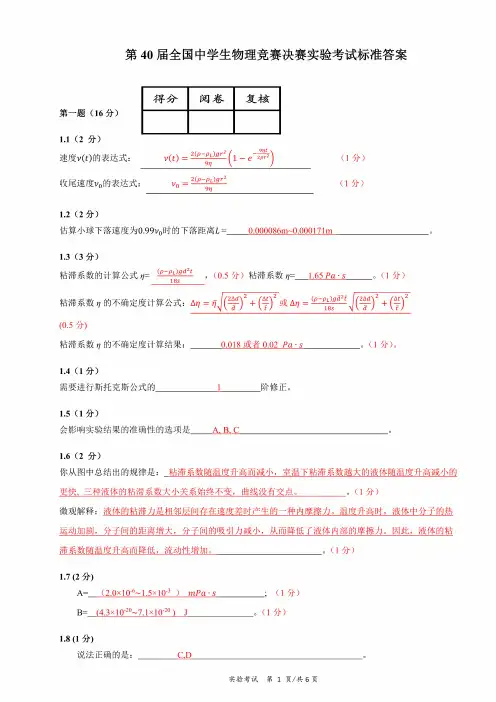 第 40 届全国中学生物理竞赛决赛实验考试标准答案
得分 阅卷 复核
第一题（16 分）
1.1（2 分）
速度v(t)的表达式： v(t) = 2(ρ−ρ_L)gr²/9η (1 − e^(−9ηt/2ρr²)) （1 分）
收尾速度v₀的表达式： v₀ = 2(ρ−ρ_L)gr²/9η （1 分）
1.2（2 分）
估算小球下落速度为0.99v₀时的下落距离L = 0.000086m~0.000171m 。
1.3（3 分）
粘滞系数的计算公式 η= (ρ−ρ_L)gd²t/18s ，（0.5 分）粘滞系数 η= 1.65 Pa · s 。（1 分）
粘滞系数 η 的不确定度计算公式: Δη = η̄√((2Δd/d̄)² + (Δt/t̄)²) 或 Δη = (ρ−ρ_L)gd̄²t̄/18s √((2Δd/d̄)² + (Δt/t̄)²)
(0.5 分)
粘滞系数 η 的不确定度计算结果： 0.018 或者 0.02 Pa · s 。（1 分）。
1.4（1 分）
需要进行斯托克斯公式的 1 阶修正。
1.5（1 分）
会影响实验结果的准确性的选项是 A, B, C 。
1.6（2 分）
你从图中总结出的规律是： 粘滞系数随温度升高而减小，室温下粘滞系数越大的液体随温度升高减小的
更快, 三种液体的粘滞系数大小关系始终不变，曲线没有交点。 。（1 分）
微观解释：液体的粘滞力是相邻层间存在速度差时产生的一种内摩擦力，温度升高时，液体中分子的热
运动加剧，分子间的距离增大，分子间的吸引力减小，从而降低了液体内部的摩擦力。因此，液体的粘
滞系数随温度升高而降低，流动性增加。 。（1 分）
1.7 (2 分)
A= （2.0×10⁻⁶~1.5×10⁻³ ） mPa · s ; （1 分）
B= (4.3×10⁻²⁰~7.1×10⁻²⁰ ) J 。（1 分）
1.8 (1 分)
说法正确的是： C,D 。
实验考试 第 1 页/共 6 页